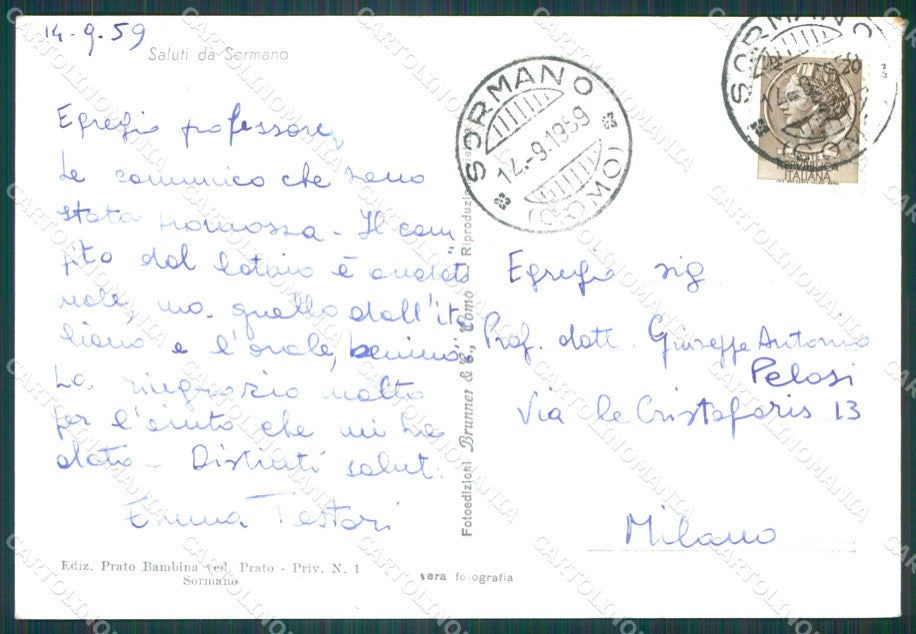 14-9.59
Saluti da Sormano
Egregio professore,
Le comunico che sono
stata promossa - Il com=
pito dal latino è andato
male, ma quello dall'ita
liano e l'orale, benino
La ringrazio molto
per l'aiuto che mi ha
dato - Distinti salut.
Emma Testori
Ediz. Prato Bambina ved. Prato - Priv. N. 1
Sormano
Fotoedizioni Brunner & C., Como Riproduzione
vera fotografia
SORMANO
12.-9.1959
(COMO)
SORMANO
(COMO)
REPVBBLICA
ITALIANA
Egregio sig
Prof. dott. Giuseppe Antonio
Pelosi
Via le Cristoforis 13
Milano
CARTOLINOMANIA